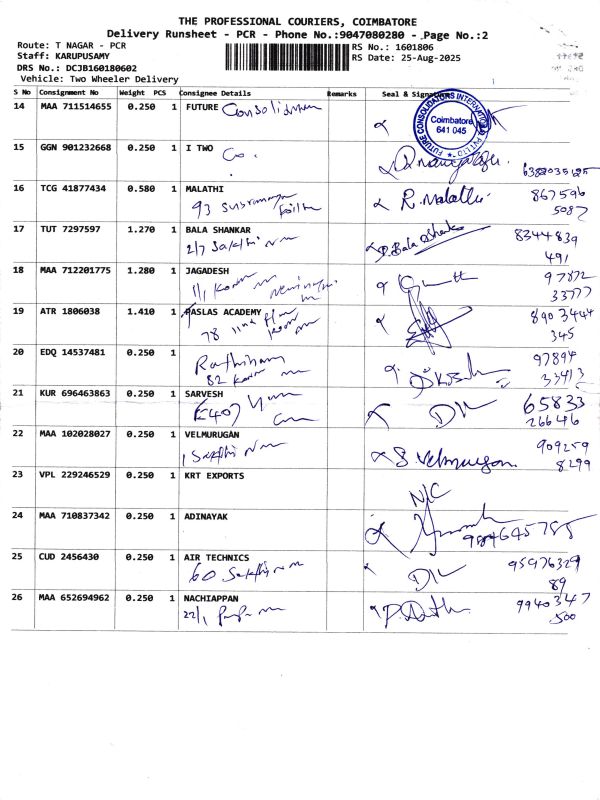 THE PROFESSIONAL COURIERS, COIMBATORE
Delivery Runsheet - PCR - Phone No.:9047080280 - Page No.:2
Route: T NAGAR - PCR RS No.: 1601806
Staff: KARUPUSAMY RS Date: 25-Aug-2025
DRS No.: DCJB160180602
Vehicle: Two Wheeler Delivery
S No Consignment No Weight PCS Consignee Details Remarks Seal & Signature
14 MAA 711514655 0.250 1 FUTURE
FUTURE CONSOLIDATORS INTERNATIONAL PVT LTD
Coimbatore
641 045
15 GGN 901232668 0.250 1 I TWO
Co.
16 TCG 41877434 0.580 1 MALATHI R. Malathi 867596
93 5087
17 TUT 7297597 1.270 1 BALA SHANKAR 8344839
2/7 Sakthi nm 491
18 MAA 712201775 1.280 1 JAGADESH 97872
1/1 33777
19 ATR 1806038 1.410 1 PASLAS ACADEMY 8903444
78 345
20 EDQ 14537481 0.250 1 97894
82 33413
21 KUR 696463863 0.250 1 SARVESH 65833
E407 26646
22 MAA 102028027 0.250 1 VELMURUGAN 909259
Sakthi nm S. Velmurugan 8299
23 VPL 229246529 0.250 1 KRT EXPORTS
N/C
24 MAA 710837342 0.250 1 ADINAYAK
25 CUD 2456430 0.250 1 AIR TECHNICS 95976329
60 Sakthi nm 89
26 MAA 652694962 0.250 1 NACHIAPPAN 9940347
22/1 500